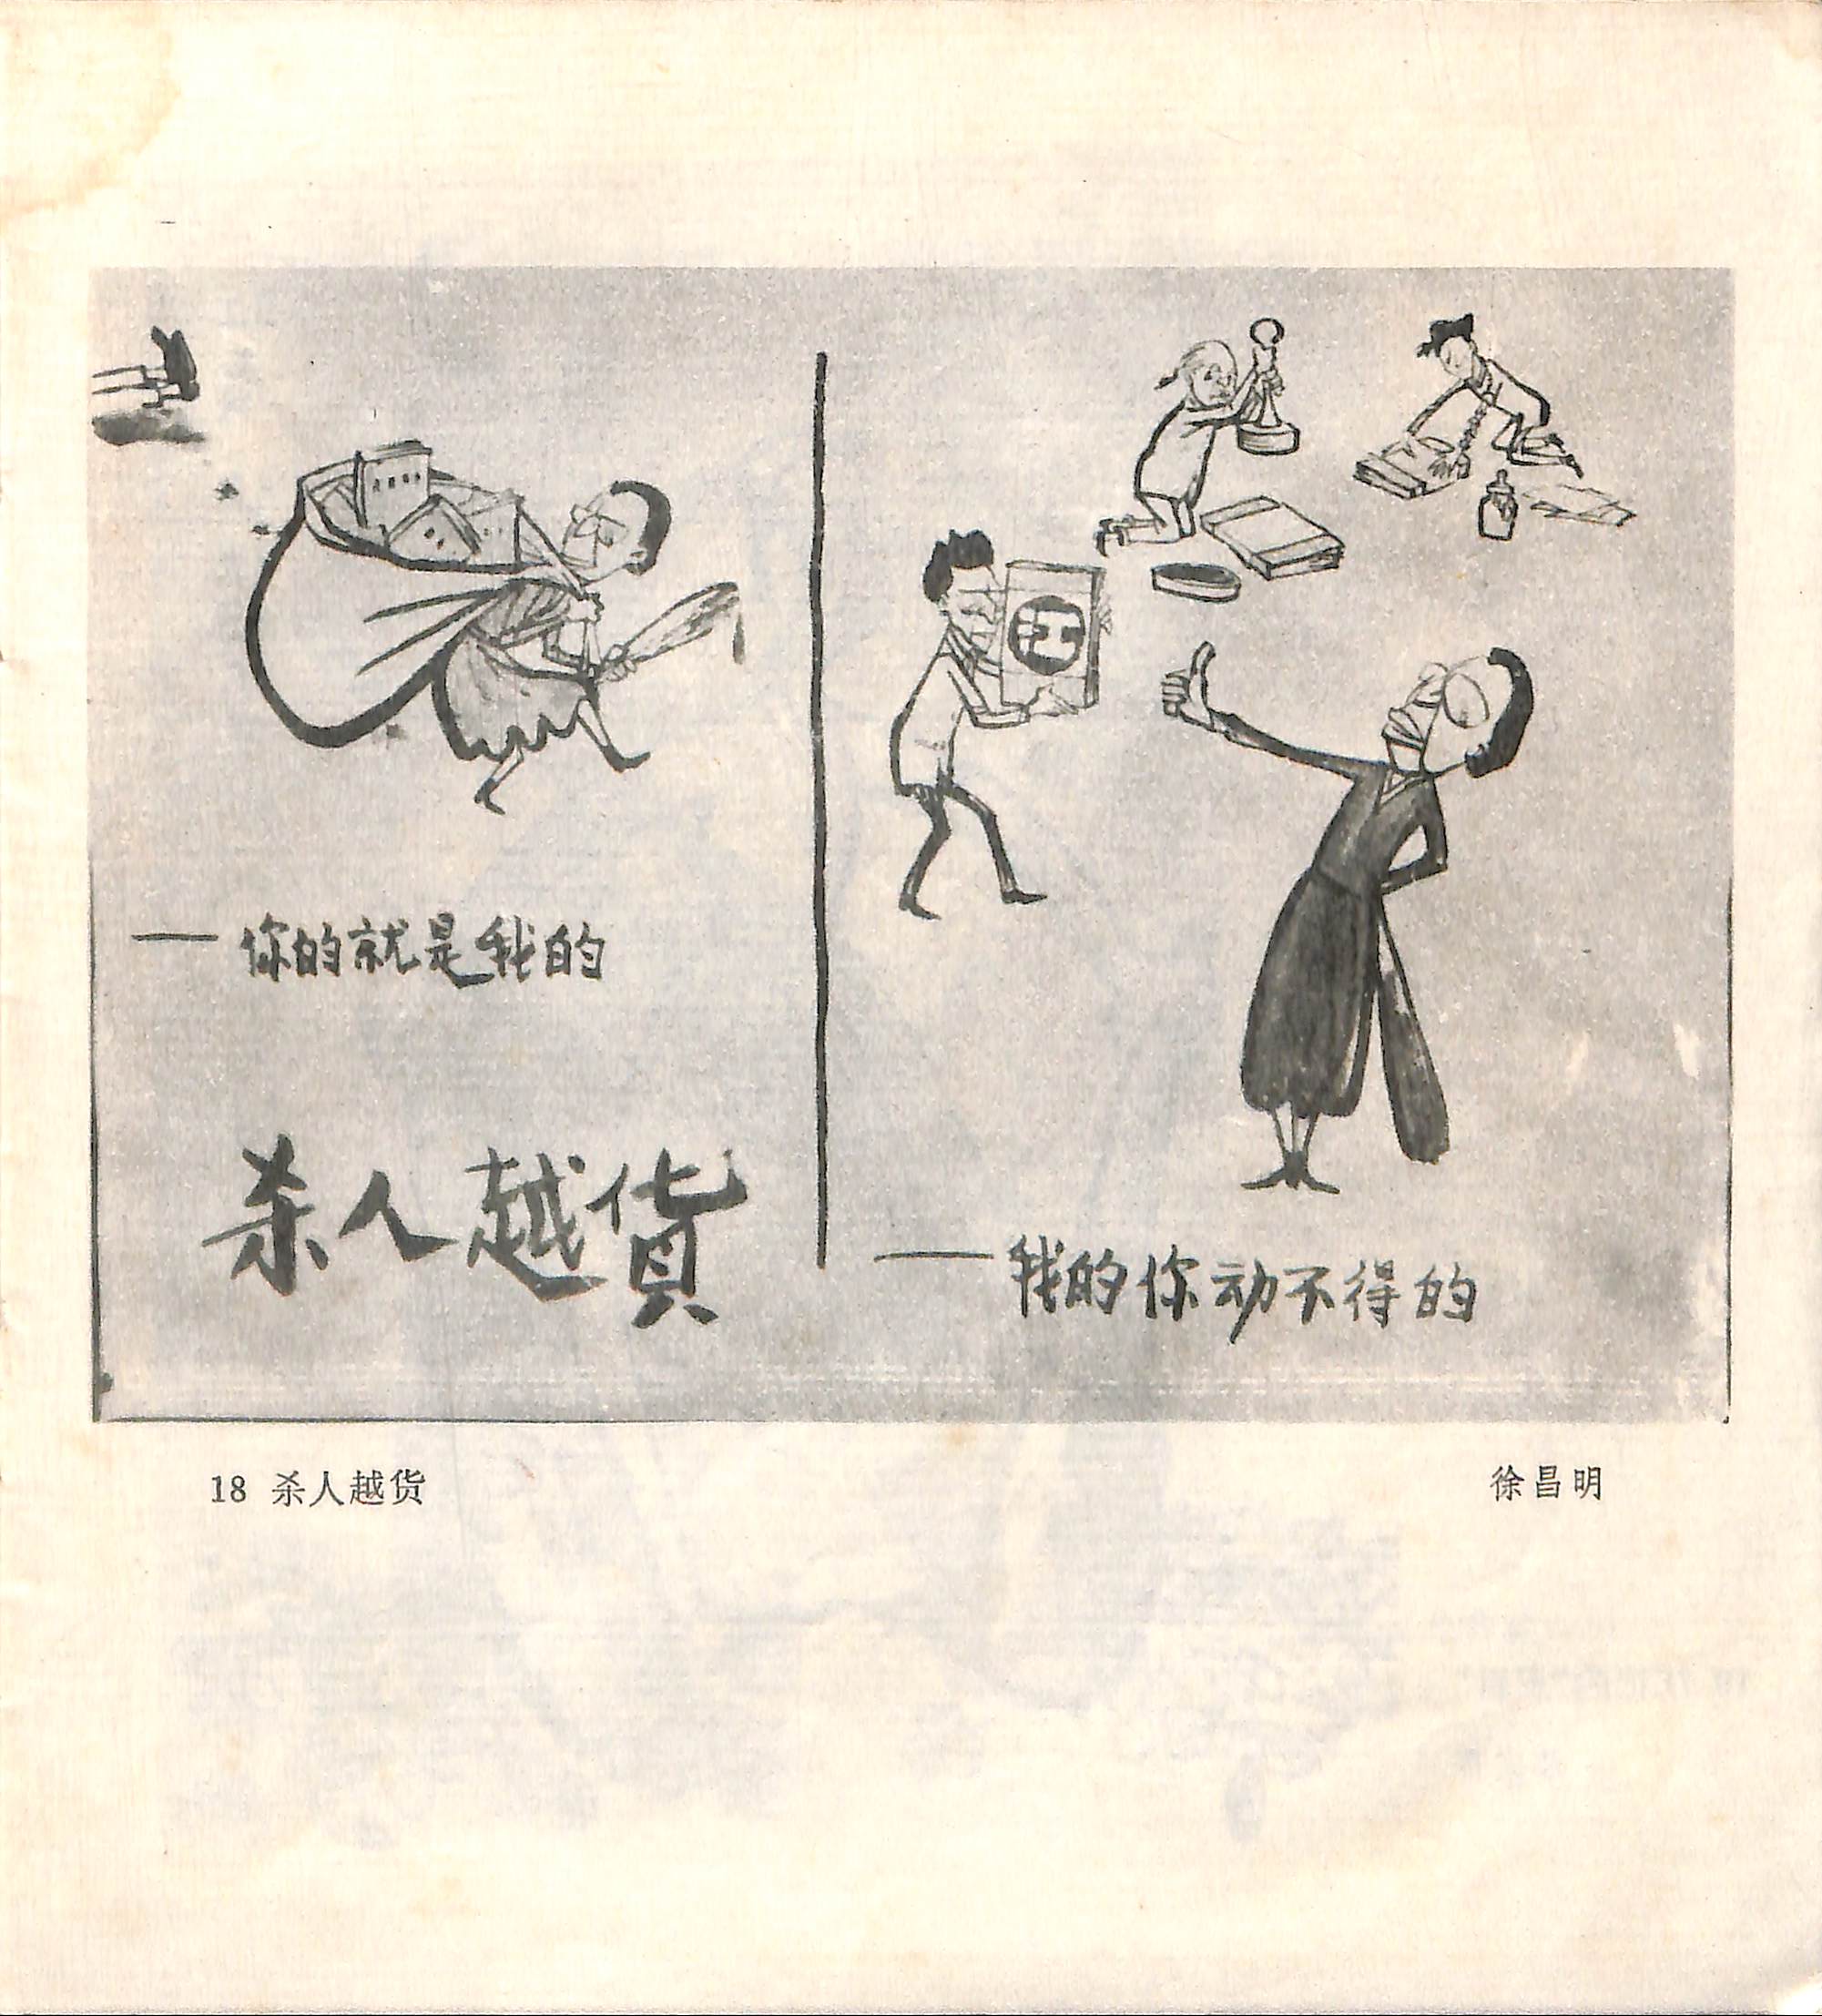 ——你的就是我的
杀人越货
——我的你动不得的
18 杀人越货
徐昌明